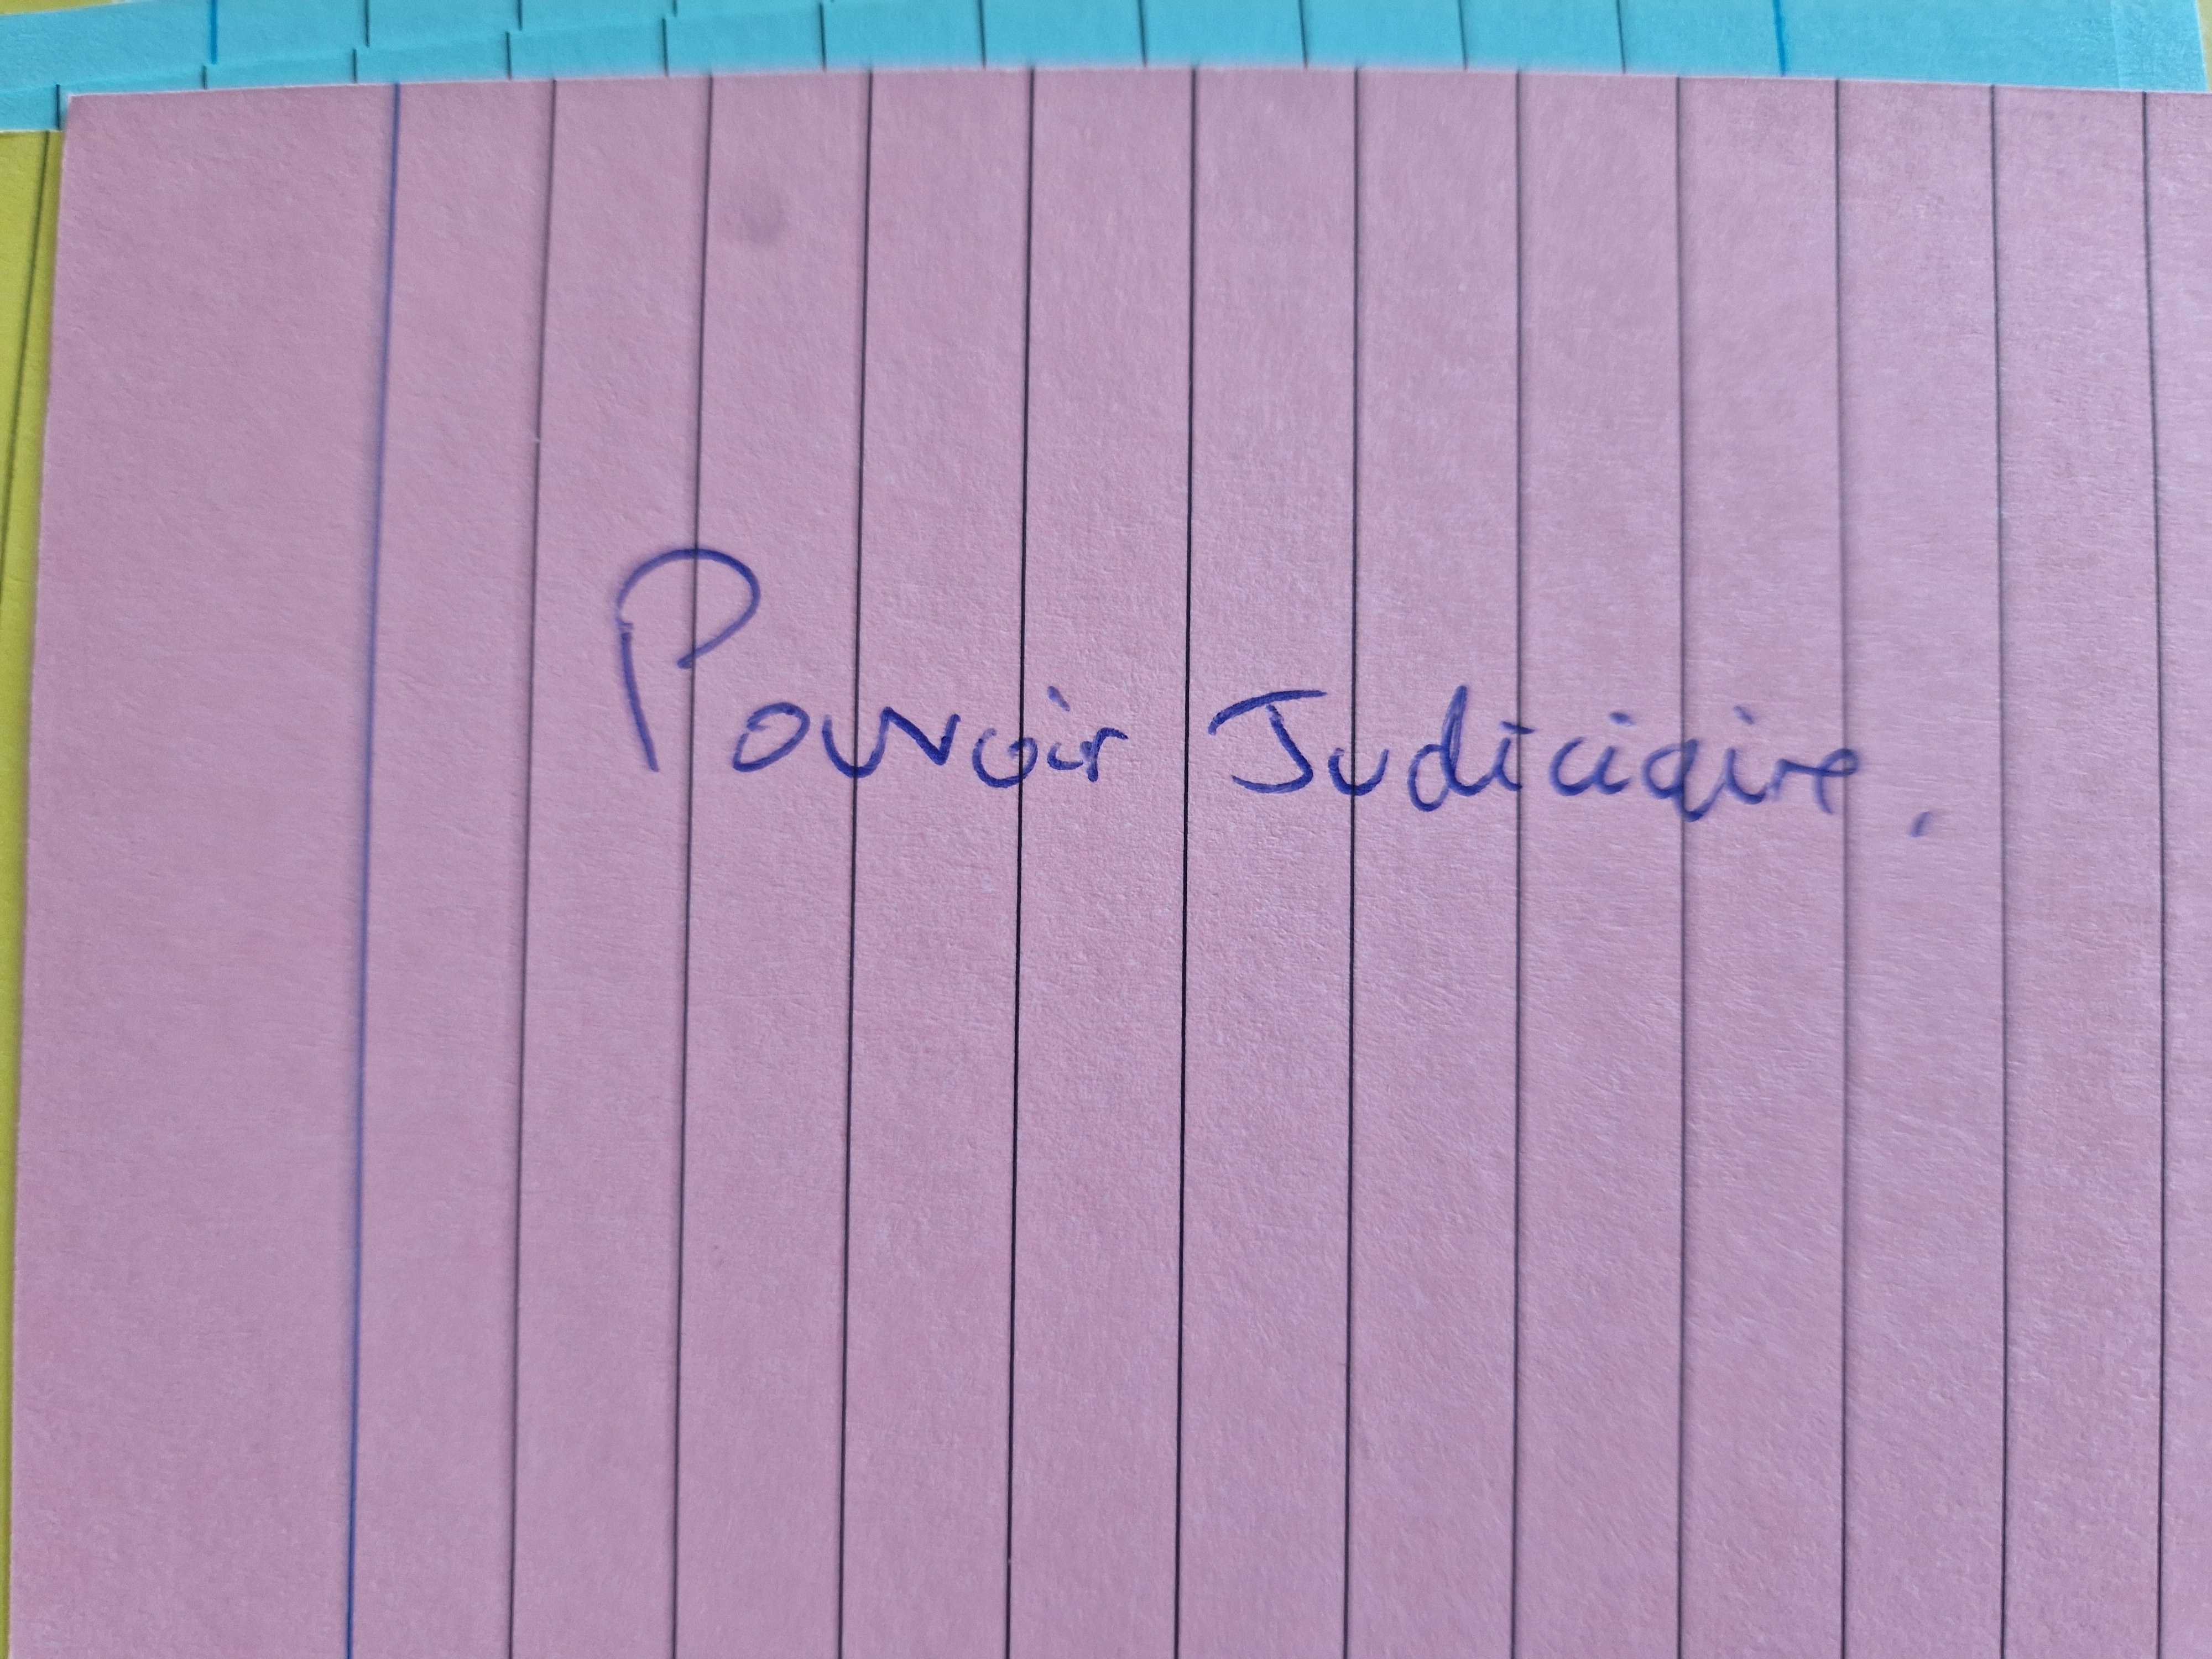 Pouvoir Judiciaire.